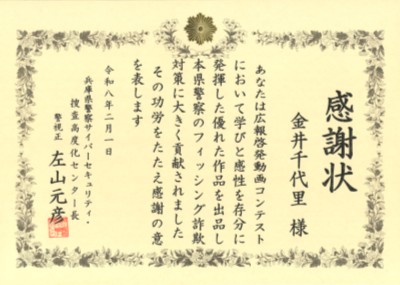 感謝状
金井千代里 様
あなたは広報啓発動画コンテスト
において学びと感性を存分に
発揮した優れた作品を出品し
本県警察のフィッシング詐欺
対策に大きく貢献されました
その功労をたたえ感謝の意
を表します
令和八年二月一日
兵庫県警察サイバーセキュリティ・
捜査高度化センター長
警視正 左山元彦